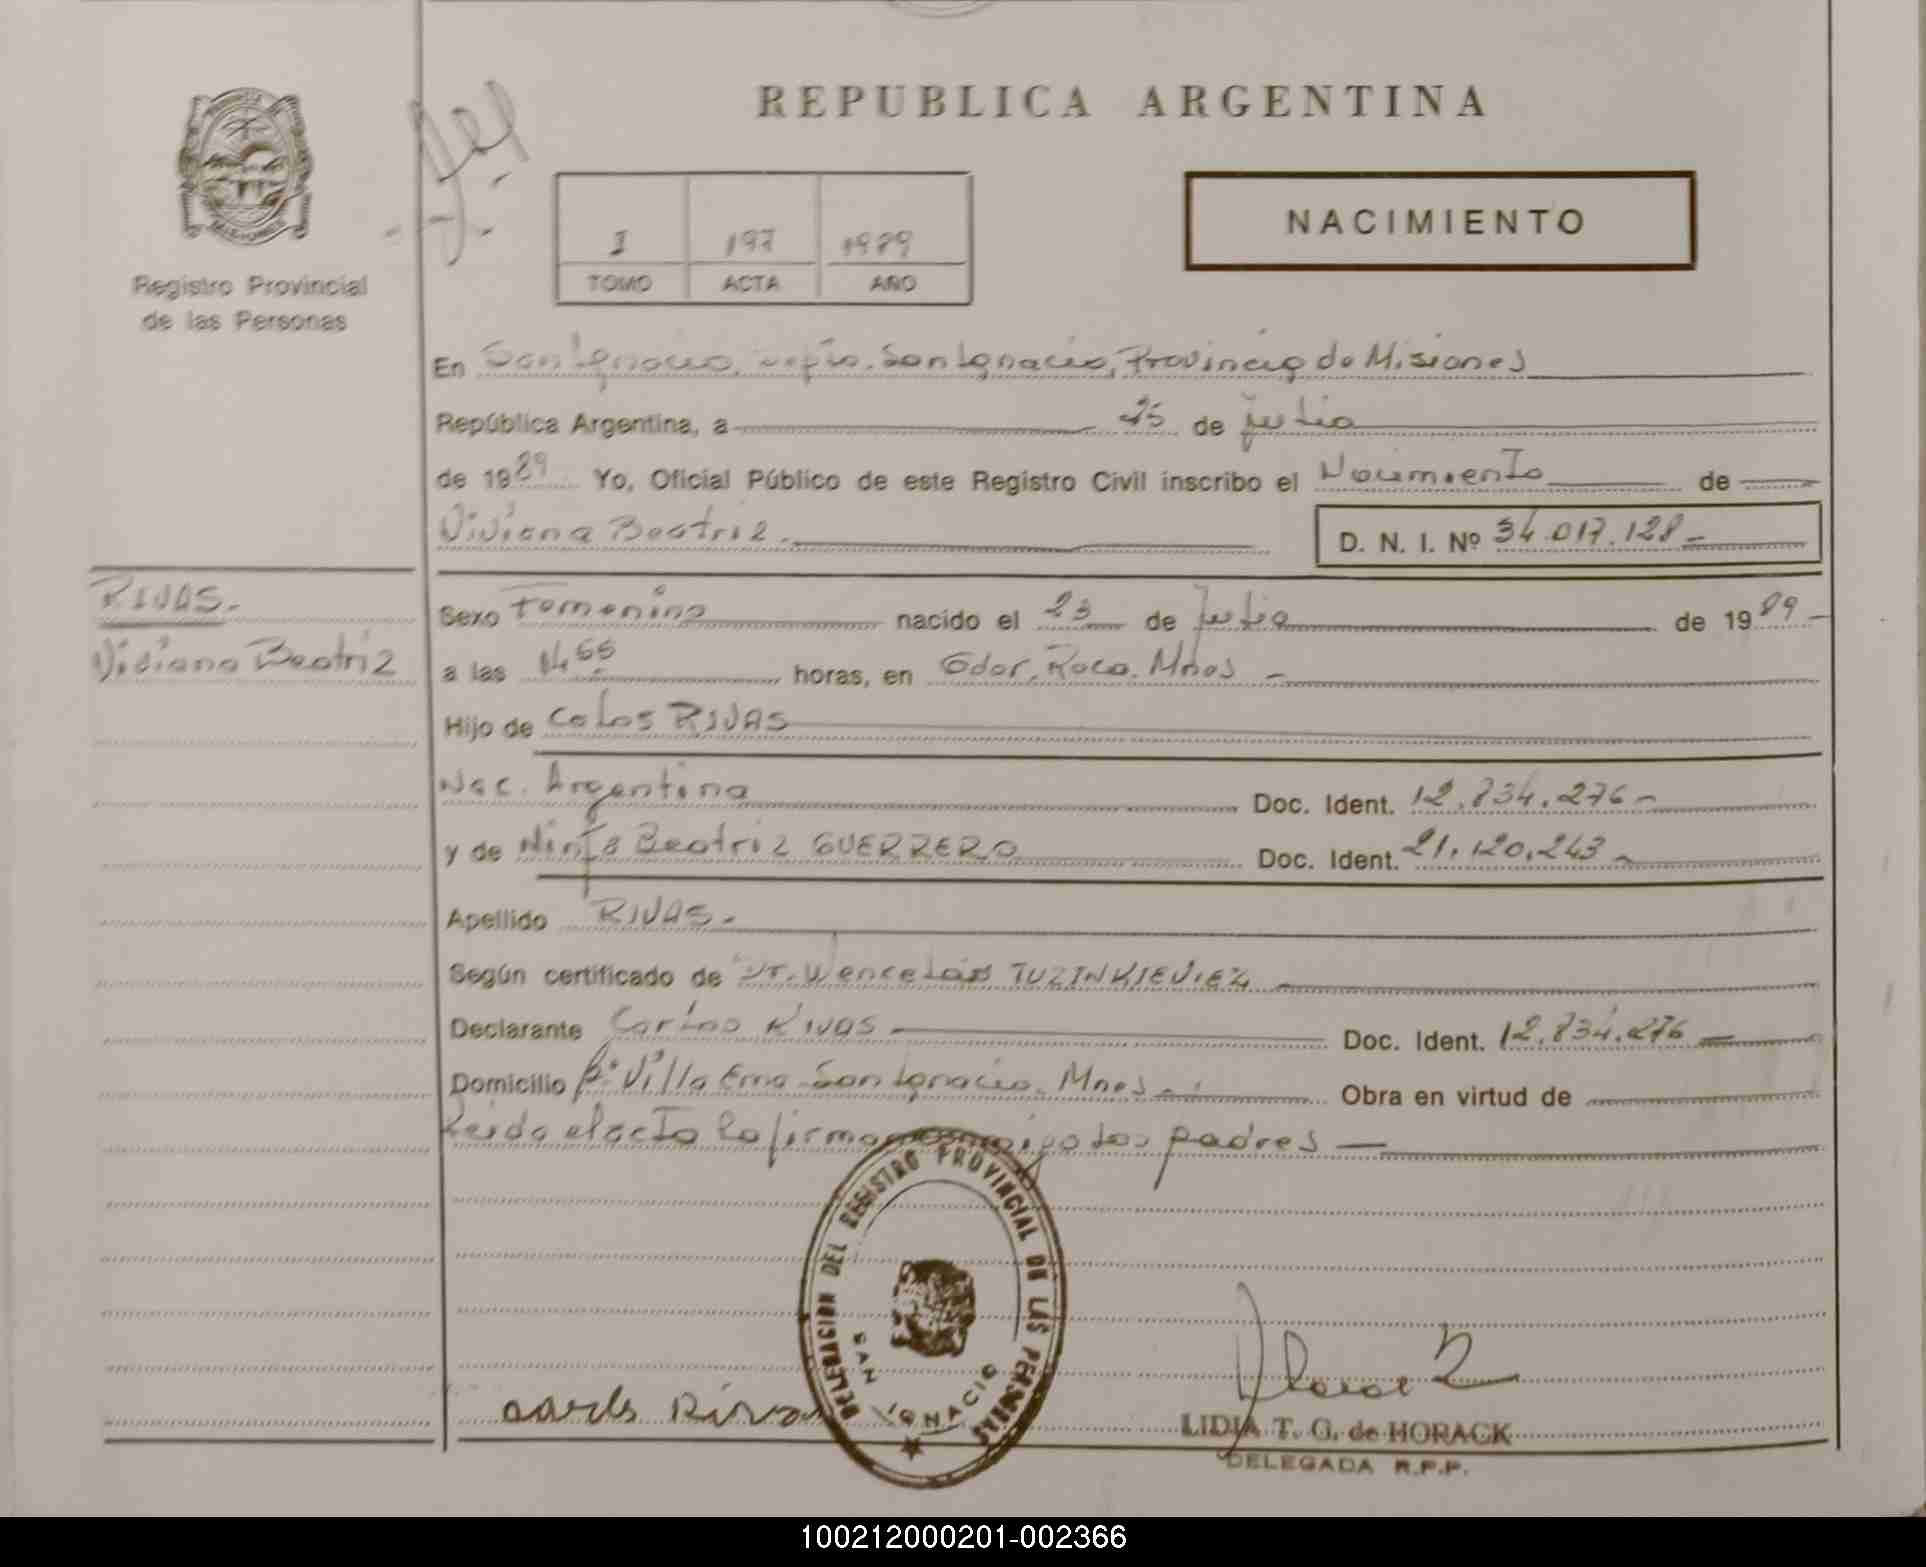 REPUBLICA ARGENTINA
PROVINCIA
MISIONES
Registro Provincial
de las Personas
I 197 1989
TOMO ACTA AÑO
NACIMIENTO
En San Ignacio, Dpto. San Ignacio, Provincia de Misiones
República Argentina, a 25 de julio
de 1989 Yo, Oficial Público de este Registro Civil inscribo el Nacimiento de
Viviana Beatriz.
D. N. I. Nº 34.017.128
RIVAS.
Viviana Beatriz
Sexo Femenino nacido el 23 de julio de 1989
a las horas, en Gdor. Roca. Mnes
Hijo de Calos RIVAS
Nac. Argentina Doc. Ident. 12.834.276
y de Ninfa Beatriz GUERRERO Doc. Ident. 21.120.243
Apellido RIVAS.
Según certificado de Dr. Wenceslao TUZINKIEVIEZ
Declarante Carlos Rivas Doc. Ident. 12.834.276
Domicilio Bº Villa Ema. San Ignacio. Mnes Obra en virtud de
Leída el acta la firman conmigo los padres
DELEGACION DEL REGISTRO PROVINCIAL DE LAS PERSONAS
SAN IGNACIO
carls Rivas
LIDIA T. G. de HORACK
DELEGADA R.P.P.
100212000201-002366